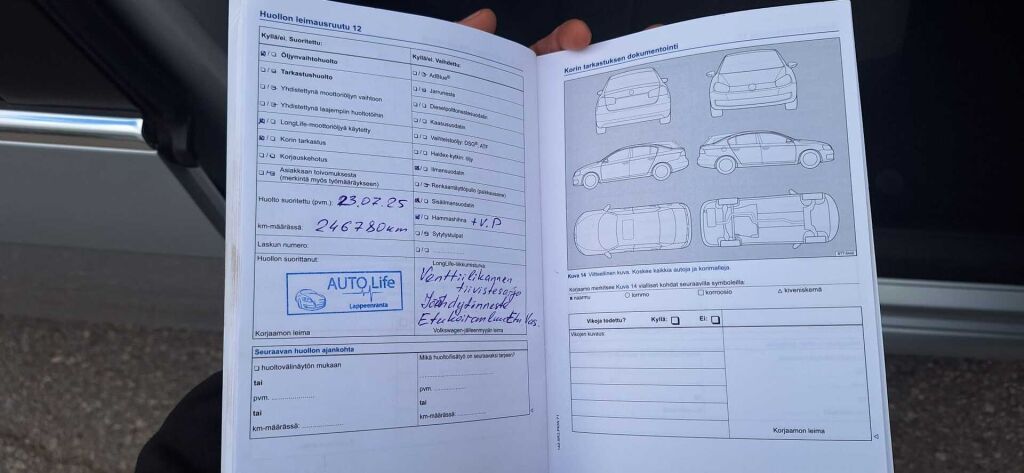 Huollon leimausruutu 12
Kyllä/ei. Suoritettu:
Öljynvaihtohuolto
Tarkastushuolto
Yhdistettynä moottoriöljyn vaihtoon
Yhdistettynä laajempiin huoltotöihin
LongLife-moottoriöljyä käytetty
Korin tarkastus
Korjauskehotus
Asiakkaan toivomuksesta
(merkintä myös työmääräykseen)
Huolto suoritettu (pvm.): 23.07.25
km-määrässä: 246780km
Laskun numero:
Huollon suorittanut:
AUTO Life
Lappeenranta
Korjaamon leima
Kyllä/ei. Vaihdettu:
AdBlue®
Jarruneste
Dieselpolttonestesuodatin
Kaasusuodatin
Vaihteistoöljy: DSG®, ATF
Haldex-kytkin: öljy
Ilmansuodatin
Renkaantäyttöpullo (paikkausaine)
Sisäilmansuodatin
Hammashihna + V.P
Sytytystulpat
LongLife-liikkumisturva
Venttiilikannen
tiivistesarja
Jäähdytinneste
Volkswagen-jälleenmyyjän leima
Seuraavan huollon ajankohta
huoltovälinäytön mukaan
tai
pvm.
tai
km-määrässä:
Mikä huoltolisätyö on seuraavaksi tarpeen?
pvm.
tai
km-määrässä:
Korin tarkastuksen dokumentointi
Kuva 14 Viitteellinen kuva. Koskee kaikkia autoja ja korimalleja.
Korjaamo merkitsee Kuva 14 vialliset kohdat seuraavilla symboleilla:
x naarmu ○ lommo □ korroosio △ kiveniskemä
Vikoja todettu? Kyllä: Ei:
Vikojen kuvaus:
Korjaamon leima